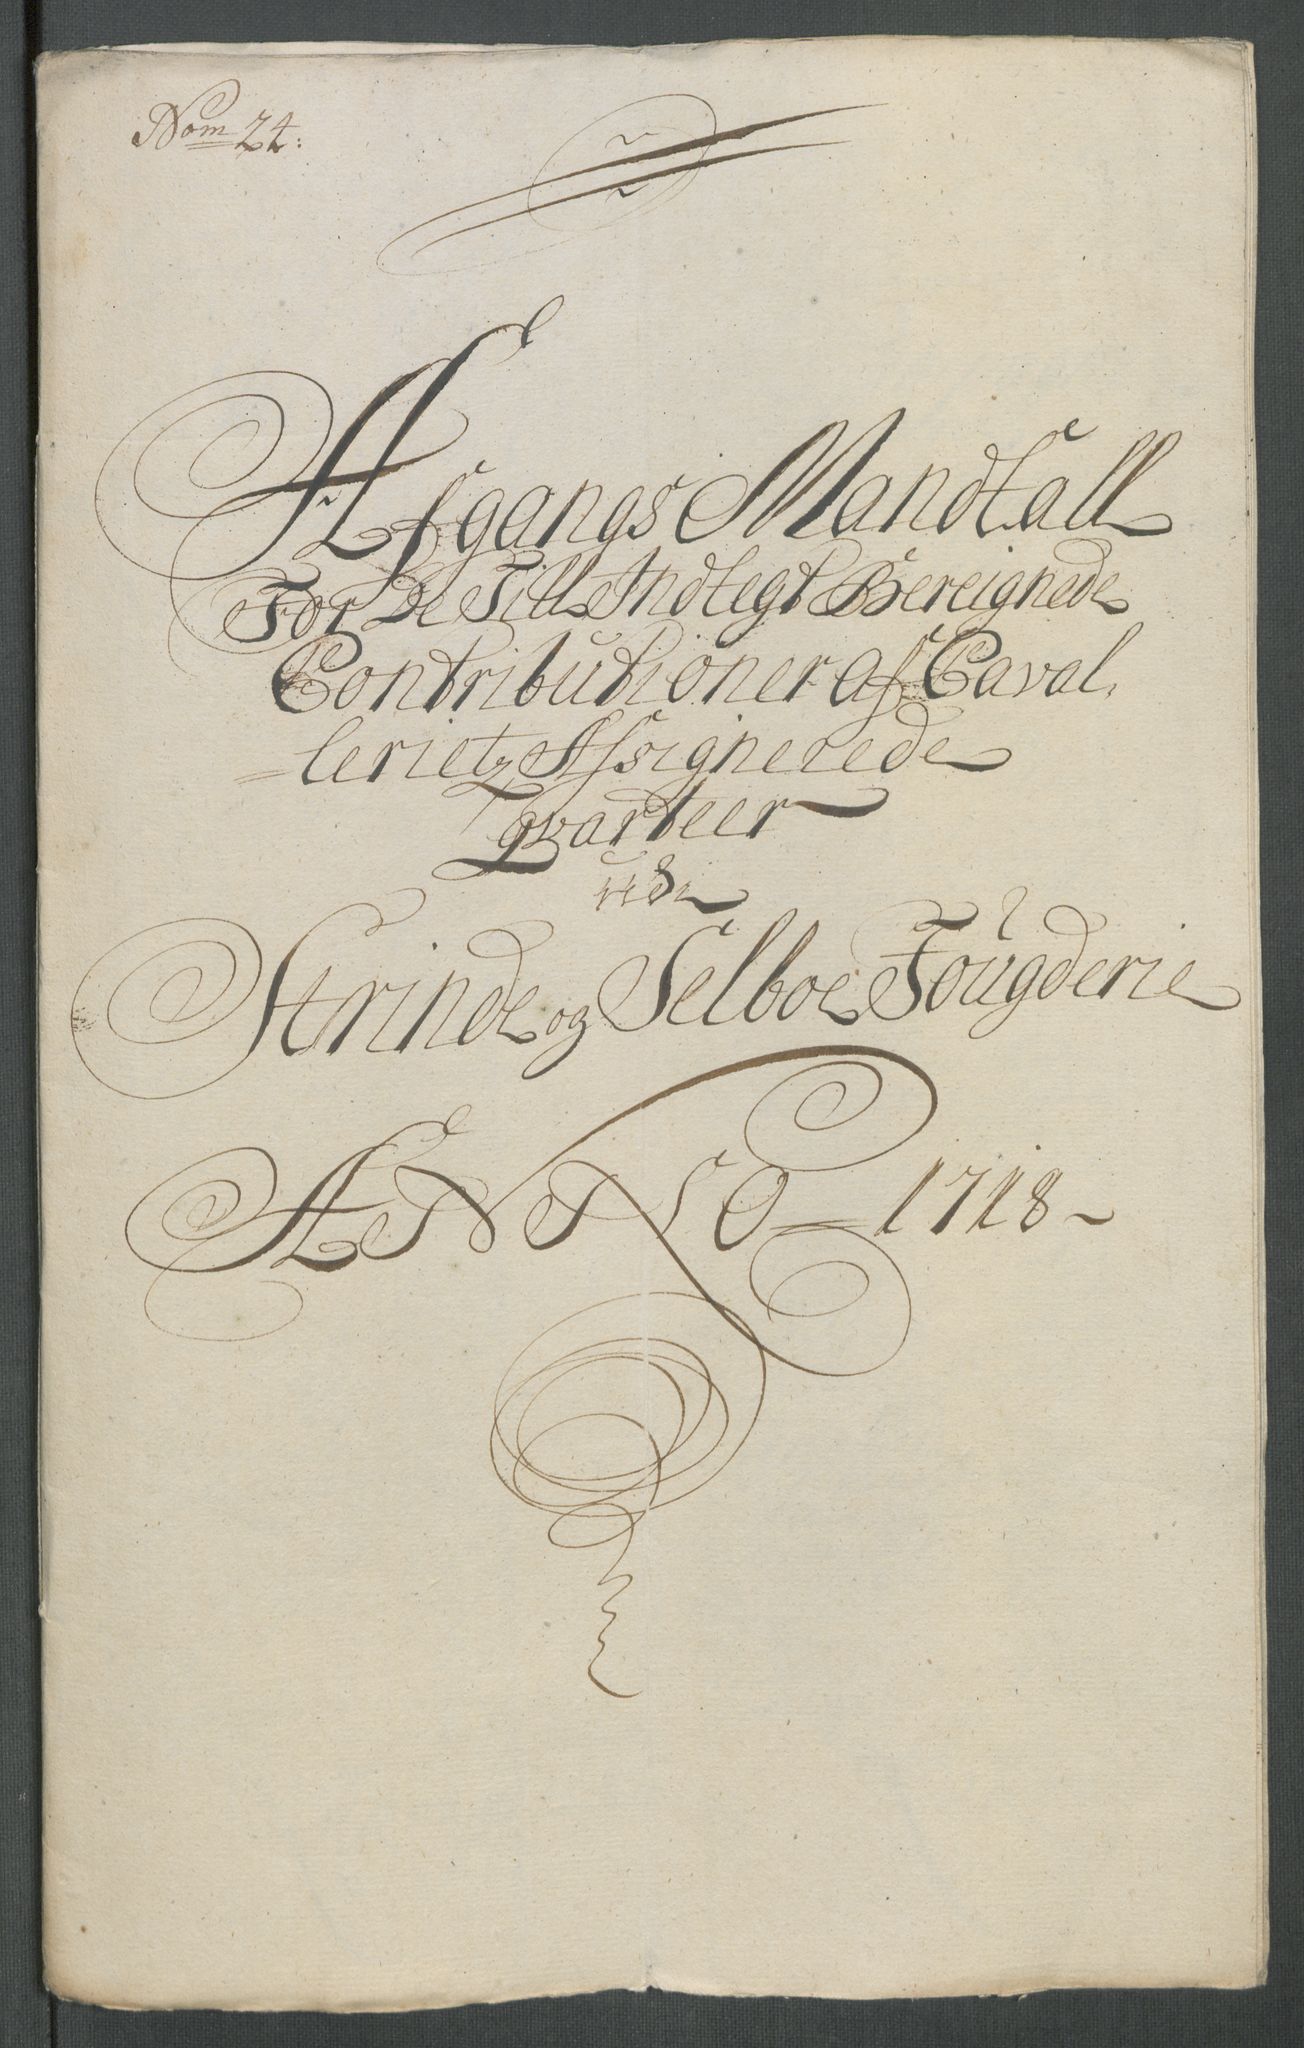 Nom 24:
Afgangs Mandtall
For De Till Indtegt Bereignede
Contributioner af Caval,
=lerietz Assignerede
Qvarteer
udi
Strinde og Selboe Fougderie
ANNO 1718